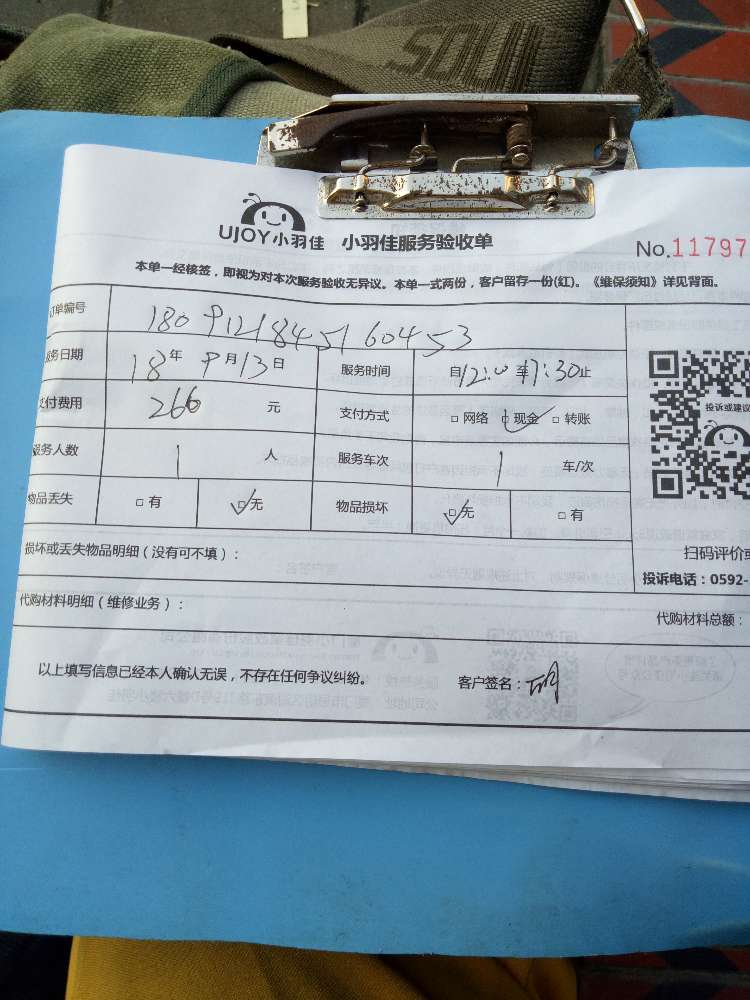 SOUN
UJOY小羽佳 小羽佳服务验收单
No.11797
本单一经核签，即视为对本次服务验收无异议。本单一式两份，客户留存一份(红)。《维保须知》详见背面。
订单编号 180912184516 0453
服务日期 18年 9月13日 服务时间 自12:0至17:30止
支付费用 266 元 支付方式 □网络 □现金 □转账
投诉或建议
服务人数 1 人 服务车次 1 车/次
物品丢失 □有 □无 物品损坏 □无 □有
损坏或丢失物品明细（没有可不填）：
扫码评价或
投诉电话：0592-
代购材料明细（维修业务）：
代购材料总额：
以上填写信息已经本人确认无误，不存在任何争议纠纷。 客户签名：